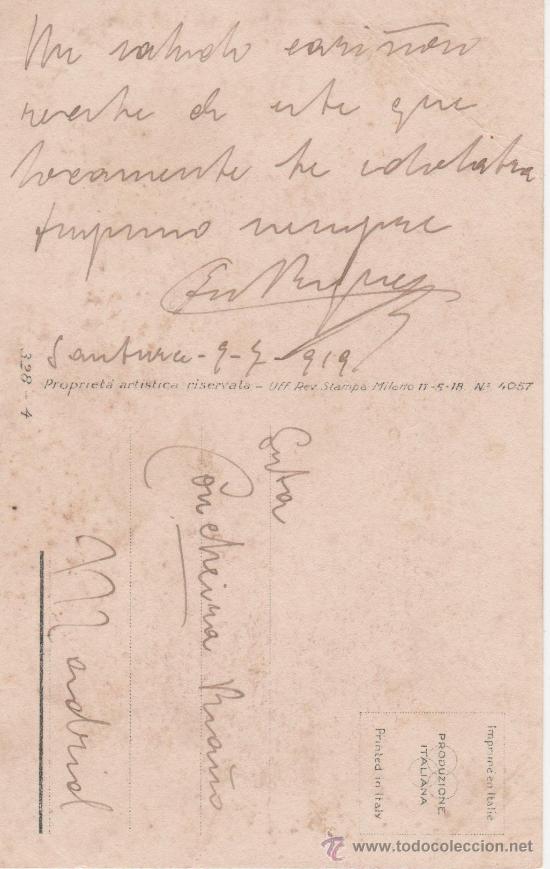 Un saludo cariñoso
recibe de este que
locamente te idolatra
tuyísimo siempre
Enrique
Santurce - 9-7-919
328 - 4
Proprietà artistica riservata - Uff. Rev. Stampa Milano 11-5-18. N.º 4057
Srta
Concheira Riaño
Madrid
Imprimé en Italie
PRODUZIONE
ITALIANA
Printed in Italy
www.todocoleccion.net